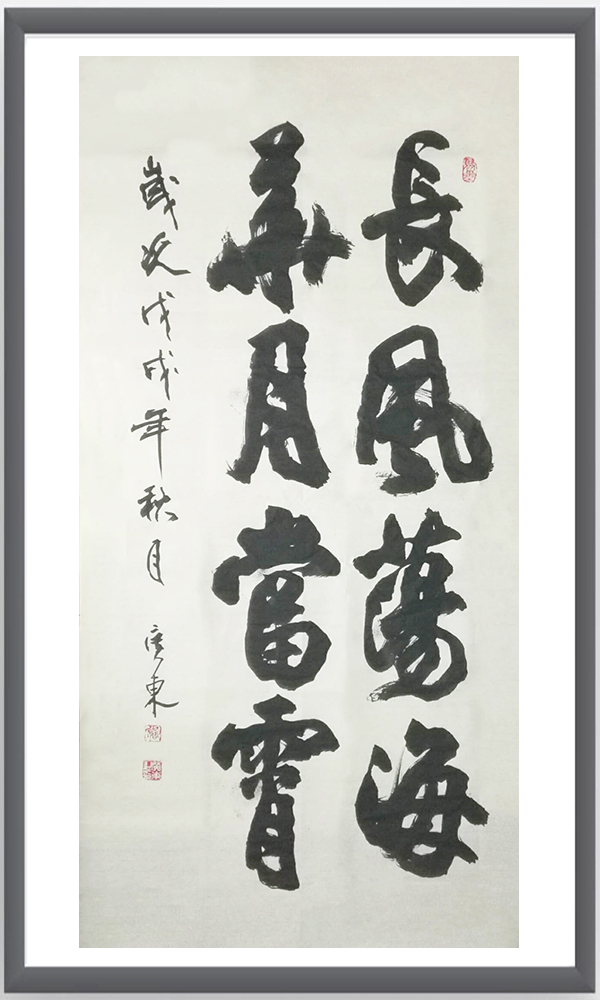 長風蕩海
華月當霄
歲次戊戌年秋月 廣東